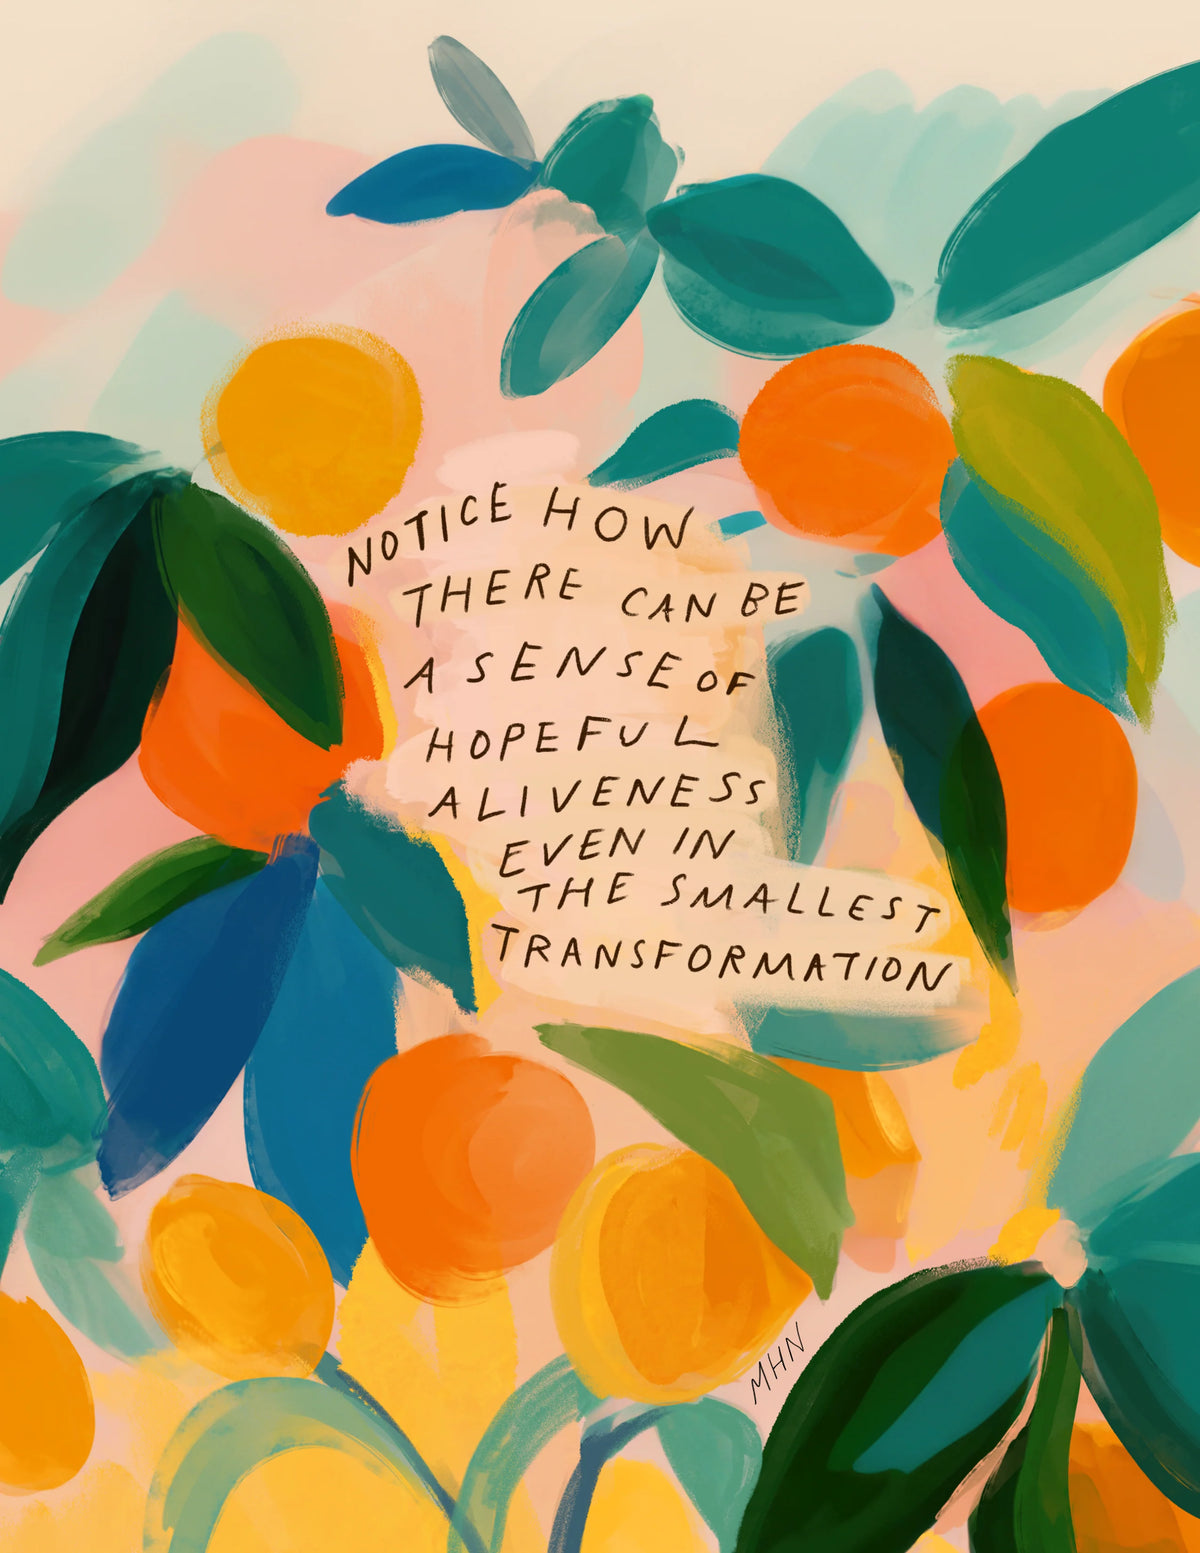 NOTICE HOW
THERE CAN BE
A SENSE OF
HOPEFUL
ALIVENESS
EVEN IN
THE SMALLEST
TRANSFORMATION
MHN